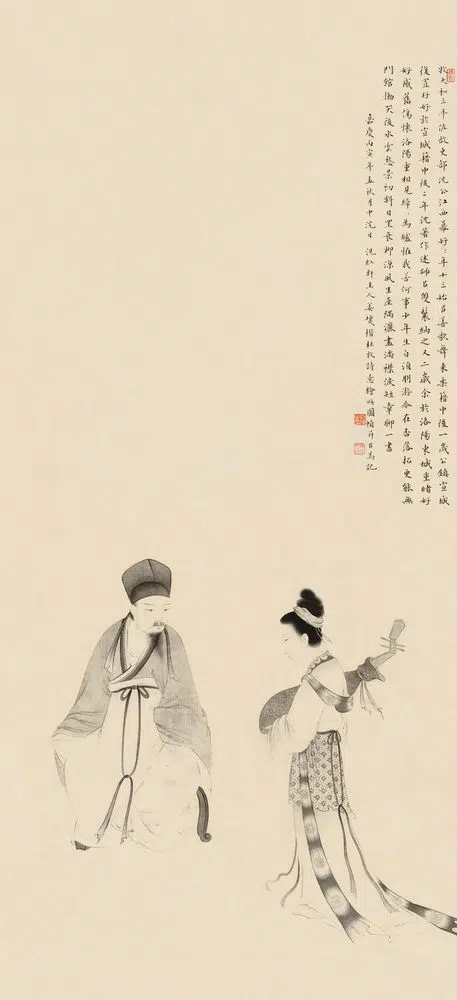 牧大和三年佐故吏部沈公江西幕好々年十三始㠯善歌舞來樂籍中後一歲公鎮宣城
復置好好於宣城籍中後二年沈著作述師㠯雙鬟納之又二歲余於洛陽東城重睹好
好感舊傷懷洛陽重相見綽々為壚怪我苦何事少年生白須朋游今在否落拓更能無
門館慟哭後水雲愁景初斜日罣衰柳涼風生座隅灑盡滿襟淚短章聊一書
嘉慶丙寅年孟秋月中浣日 洗紅軒主人姜壎楷杜牧詩意繪此圖幀并㠯為記